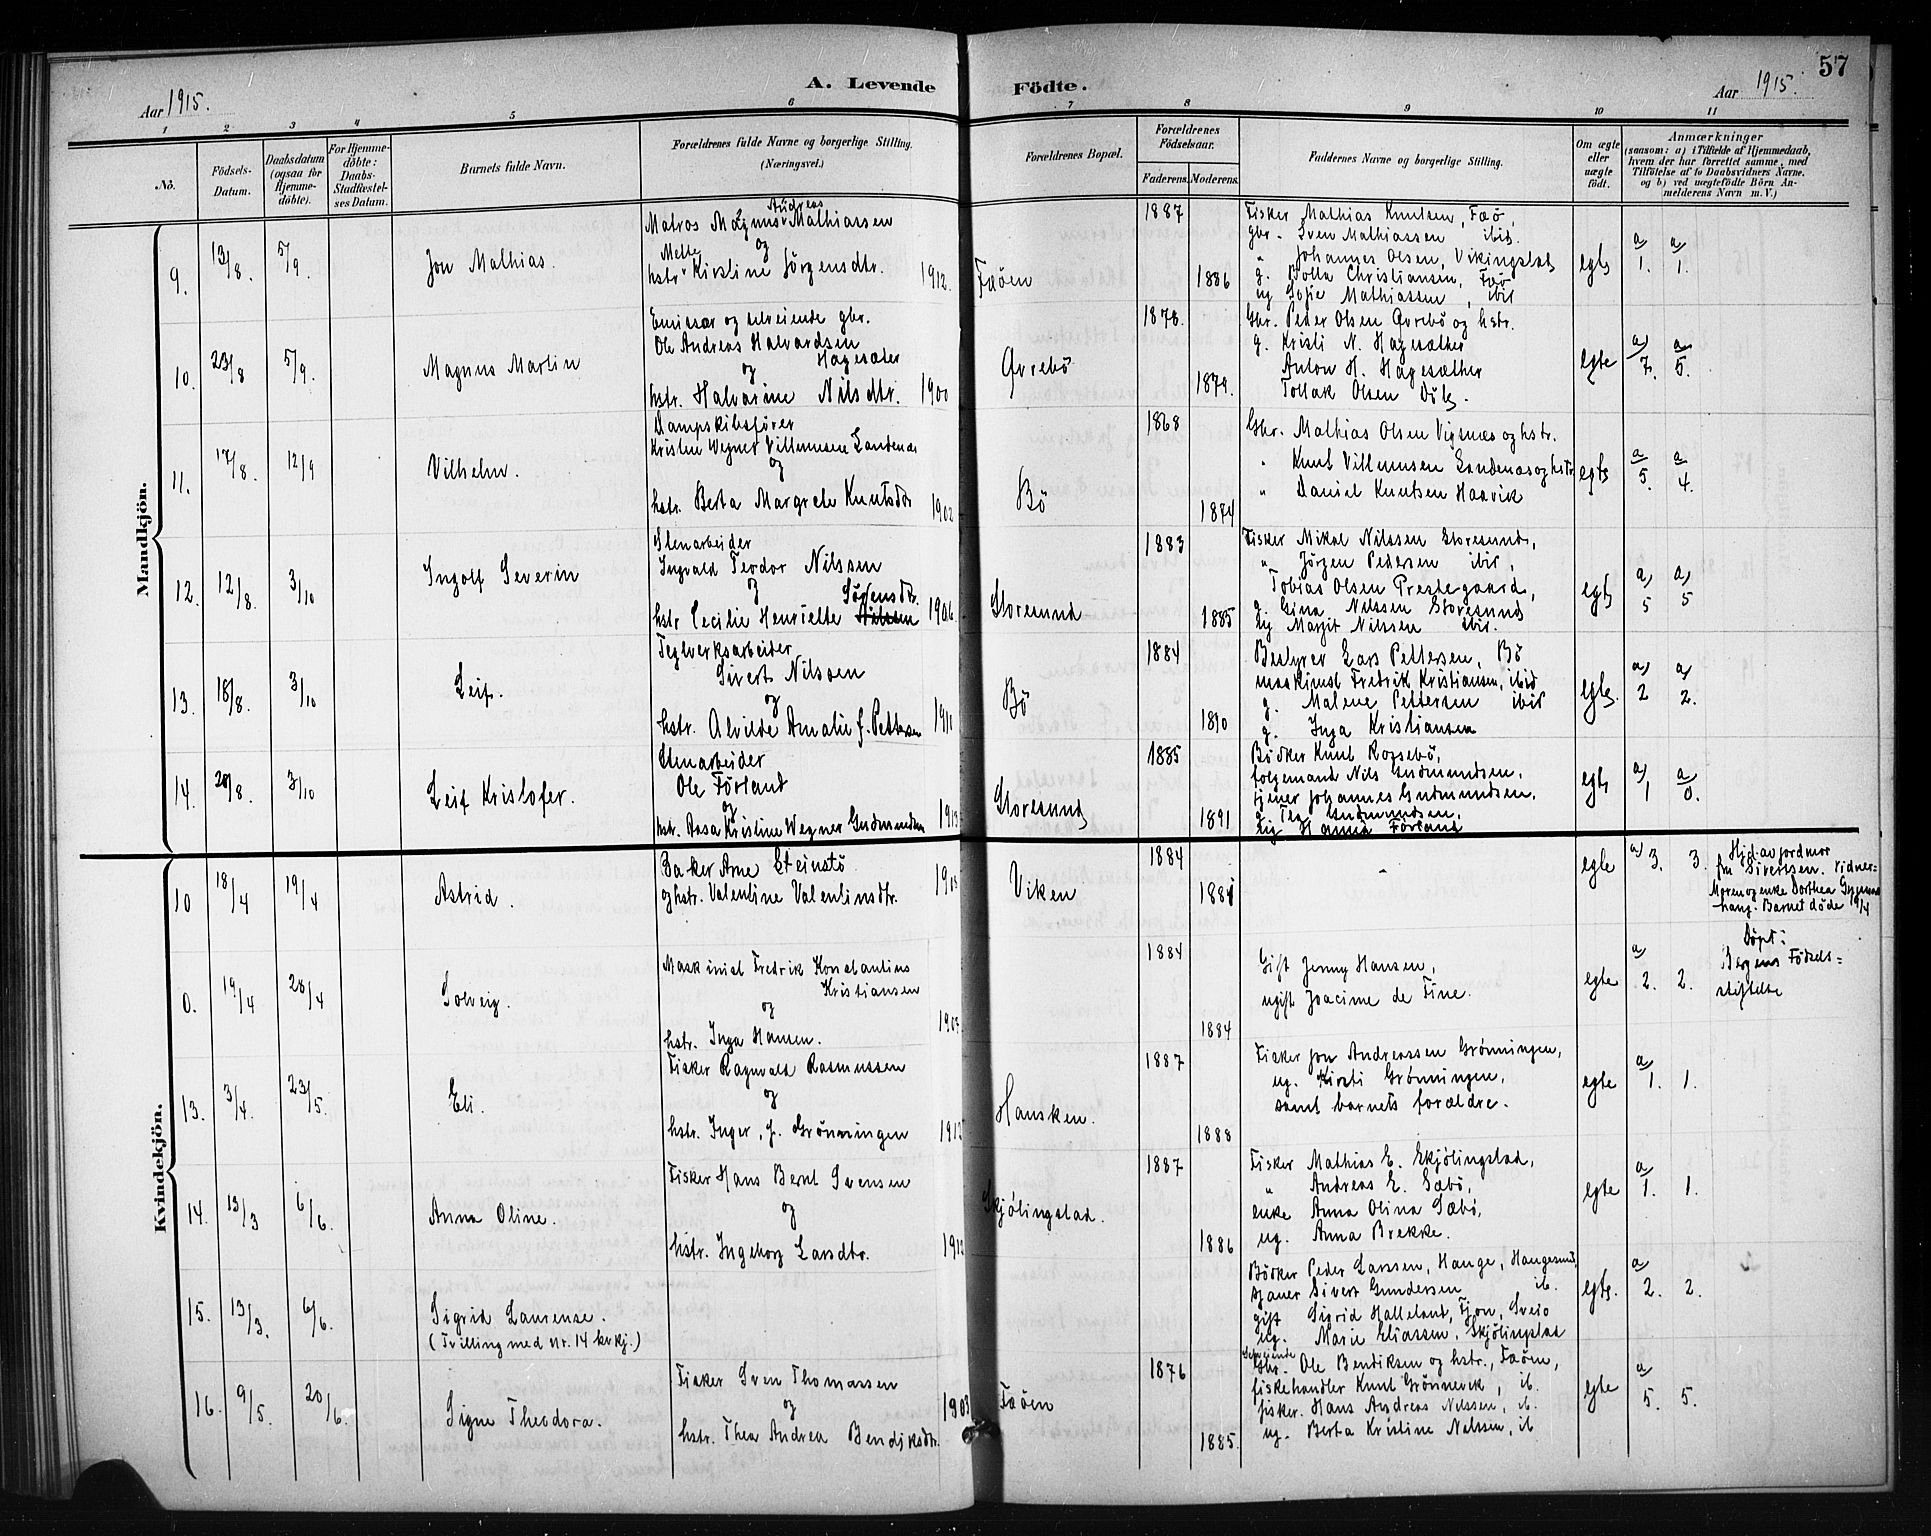 57
A. Levende Födte.
Aar 1915.
Aar 1915.
1 2 3 4 5 6 7 8 9 10 11
No.
Födsels-Datum.
Daabsdatum (ogsaa for Hjemme-döbte).
For Hjemme-döbte: Daabs-Stadfæstelses Datum.
Barnets fulde Navn.
Forældrenes fulde Navne og borgerlige Stilling. (Næringsvei.)
Forældrenes Bopæl.
Forældrenes Födselsaar.
Faderens. Moderens.
Faddernes Navne og borgerlige Stilling.
Om ægte eller uægte födt.
Anmærkninger
(saasom: a) i Tilfælde af Hjemmedaab,
hvem der har forrettet samme, med
Tilföielse af to Daabsvidners Navne.
og b) ved uægtefödte Börn An-
melderens Navn m. V.)
Mandkjön.
9. 13/8. 5/9. Jon Mathias.
Andreas
Matros Magnus Mathiassen
og
Mette
hstr Kirstine Jørgensdtr. 1912.
Faöen
1887
1886
Fisker Mathias Knutsen, Faö,
gbr. Sven Mathiassen ibid.
" Johannes Olsen, Vikingstad
g. Bolla Christiansen, Faö
ug Sofie Mathiassen, ibid
egte a) 1. a) 1.
10. 23/8 5/9. Magnus Martin
Emissær og selveiende gbr.
Ole Andreas Halvardsen
Hagesæter
og
hstr. Halvarine Nilsdtr. 1900
Qvrebö
1878.
1879.
Gbr. Peder Olsen Qvrebö og hstr.
g. Kristi N. Hagesæther
Anton H. Hagesæther
Tollak Olsen
egte a) 7. a) 5.
11. 17/8. 12/9 Vilhelm.
Dampskibsfører
Kristen Wegner Villumsen Sandenæs
og
hstr. Berta Margrete Knutsdtr 1902
Bö
1868
1874
Gbr. Mathias Olsen Vigsnæs og hstr.
" Knut Villumsen Sandenæs og hstr
" Daniel Knutsen Haavik
egte a 5. a 4.
12. 12/8. 3/10 Ingolf Severin
Stenarbeider
Ingvald Teodor Nilssen
og
Sørensdtr.
hstr Cecilie Henriette Nilssen 1906
Storesund
1883
1885
Fisker Mikal Nilssen Storesund,
" Jörgen Pedersen ibid,
Tobias Olsen Prestegaard,
g. Gina Nilssen Storesund
ug Margit Nilssen ibid.
egte a) 5 a) 5
13. 18/8. 3/10 Leif.
Teglverksarbeider
Sivert Nilssen
og
hstr. Alvilde Amalie f. Pettersen 1911
Bö
1884
1890
Bestyrer Lars Pettersen, Bö
maskinist Fredrik Kristiansen, ibid
g. Malene Pettersen ibid
g. Inga Kristiansen
egte. a) 2 a) 2.
14. 28/8. 3/10 Leif Kristofer.
Stenarbeider
Ole Førland
og
hstr. Aasa Kristine Wegner Gudmundsen 1913
Storesund
1885
1891
Bödker Knut Rossebö,
folgemand Nils Gudmundsen,
tjener Johannes Gudmundsen.
g Tea Gudmundsen,
ug Hanna Førland
egte a) 1 a) 0.
Kvindekjön.
10 18/4 19/4 Astrid.
Baker Arne Steinstö
og hstr. Valentine Valentinsdtr. 1913
Viken
1884
1881
egte a) 3. 3.
Hjd. av jordmor
fru Sivertsen. Vidner=
Moren og enke Dorthea
Barnet døde 19/4
0. 19/4 28/4 Solveig.
Maskinist Fredrik Konstantius
Kristiansen
og
hstr. Inga Hansen. 1909
1884
1884
Gift Jenny Hansen,
ugift Joacime de Fine.
egte a 2. 2.
Døpt:
Bergens Fødsels=
stiftelse
13. 3/4. 23/5. Eli.
Fisker Ragnvald Rasmussen
og
hstr. Inger, f. Grönningen 1912
Hansken.
1887
1888
Fisker Jon Andreassen Grönningen,
ug. Kirsti Grönningen,
samt barnets forældre.
egte a) 1. 1.
14. 13/3 6/6. Anna Oline.
Fisker Hans Bernt Svensen
og
hstr. Ingeborg Larsdtr. 1912
Skjölingstad.
1887
1886
Fisker Mathias E. Skjölingstad,
" Andreas E. Sæbö,
enke Anna Olina Sæbö,
ug. Anna Brekke.
egte a) 1. 1.
15. 13/3. 6/6. Sigrid Laurense.
(Tvilling med nr. 14 kvkj.)
Bödker Peder Larssen, Hauge, Haugesund,
Sivert Gundersen ib.
gift Sigrid Halleland, Fjon, Sveio
ug. Marie Eliassen, Skjölingstad
egte. a) 2. 2.
16. 9/5. 20/6. Signe Theodora.
Fisker Sven Thomassen
og
hstr. Thea Andrea Bendiksdtr. 1903
Faöen
1876
1885.
Selveiende
Gbr. Ole Bendiksen og hstr., Faöen,
fiskehandler Knut Grönnevik, ib.
fisker. Hans Andreas Nilssen, ib.
ug. Berta Kristine Nilssen, ib
egte a) 5. 5.